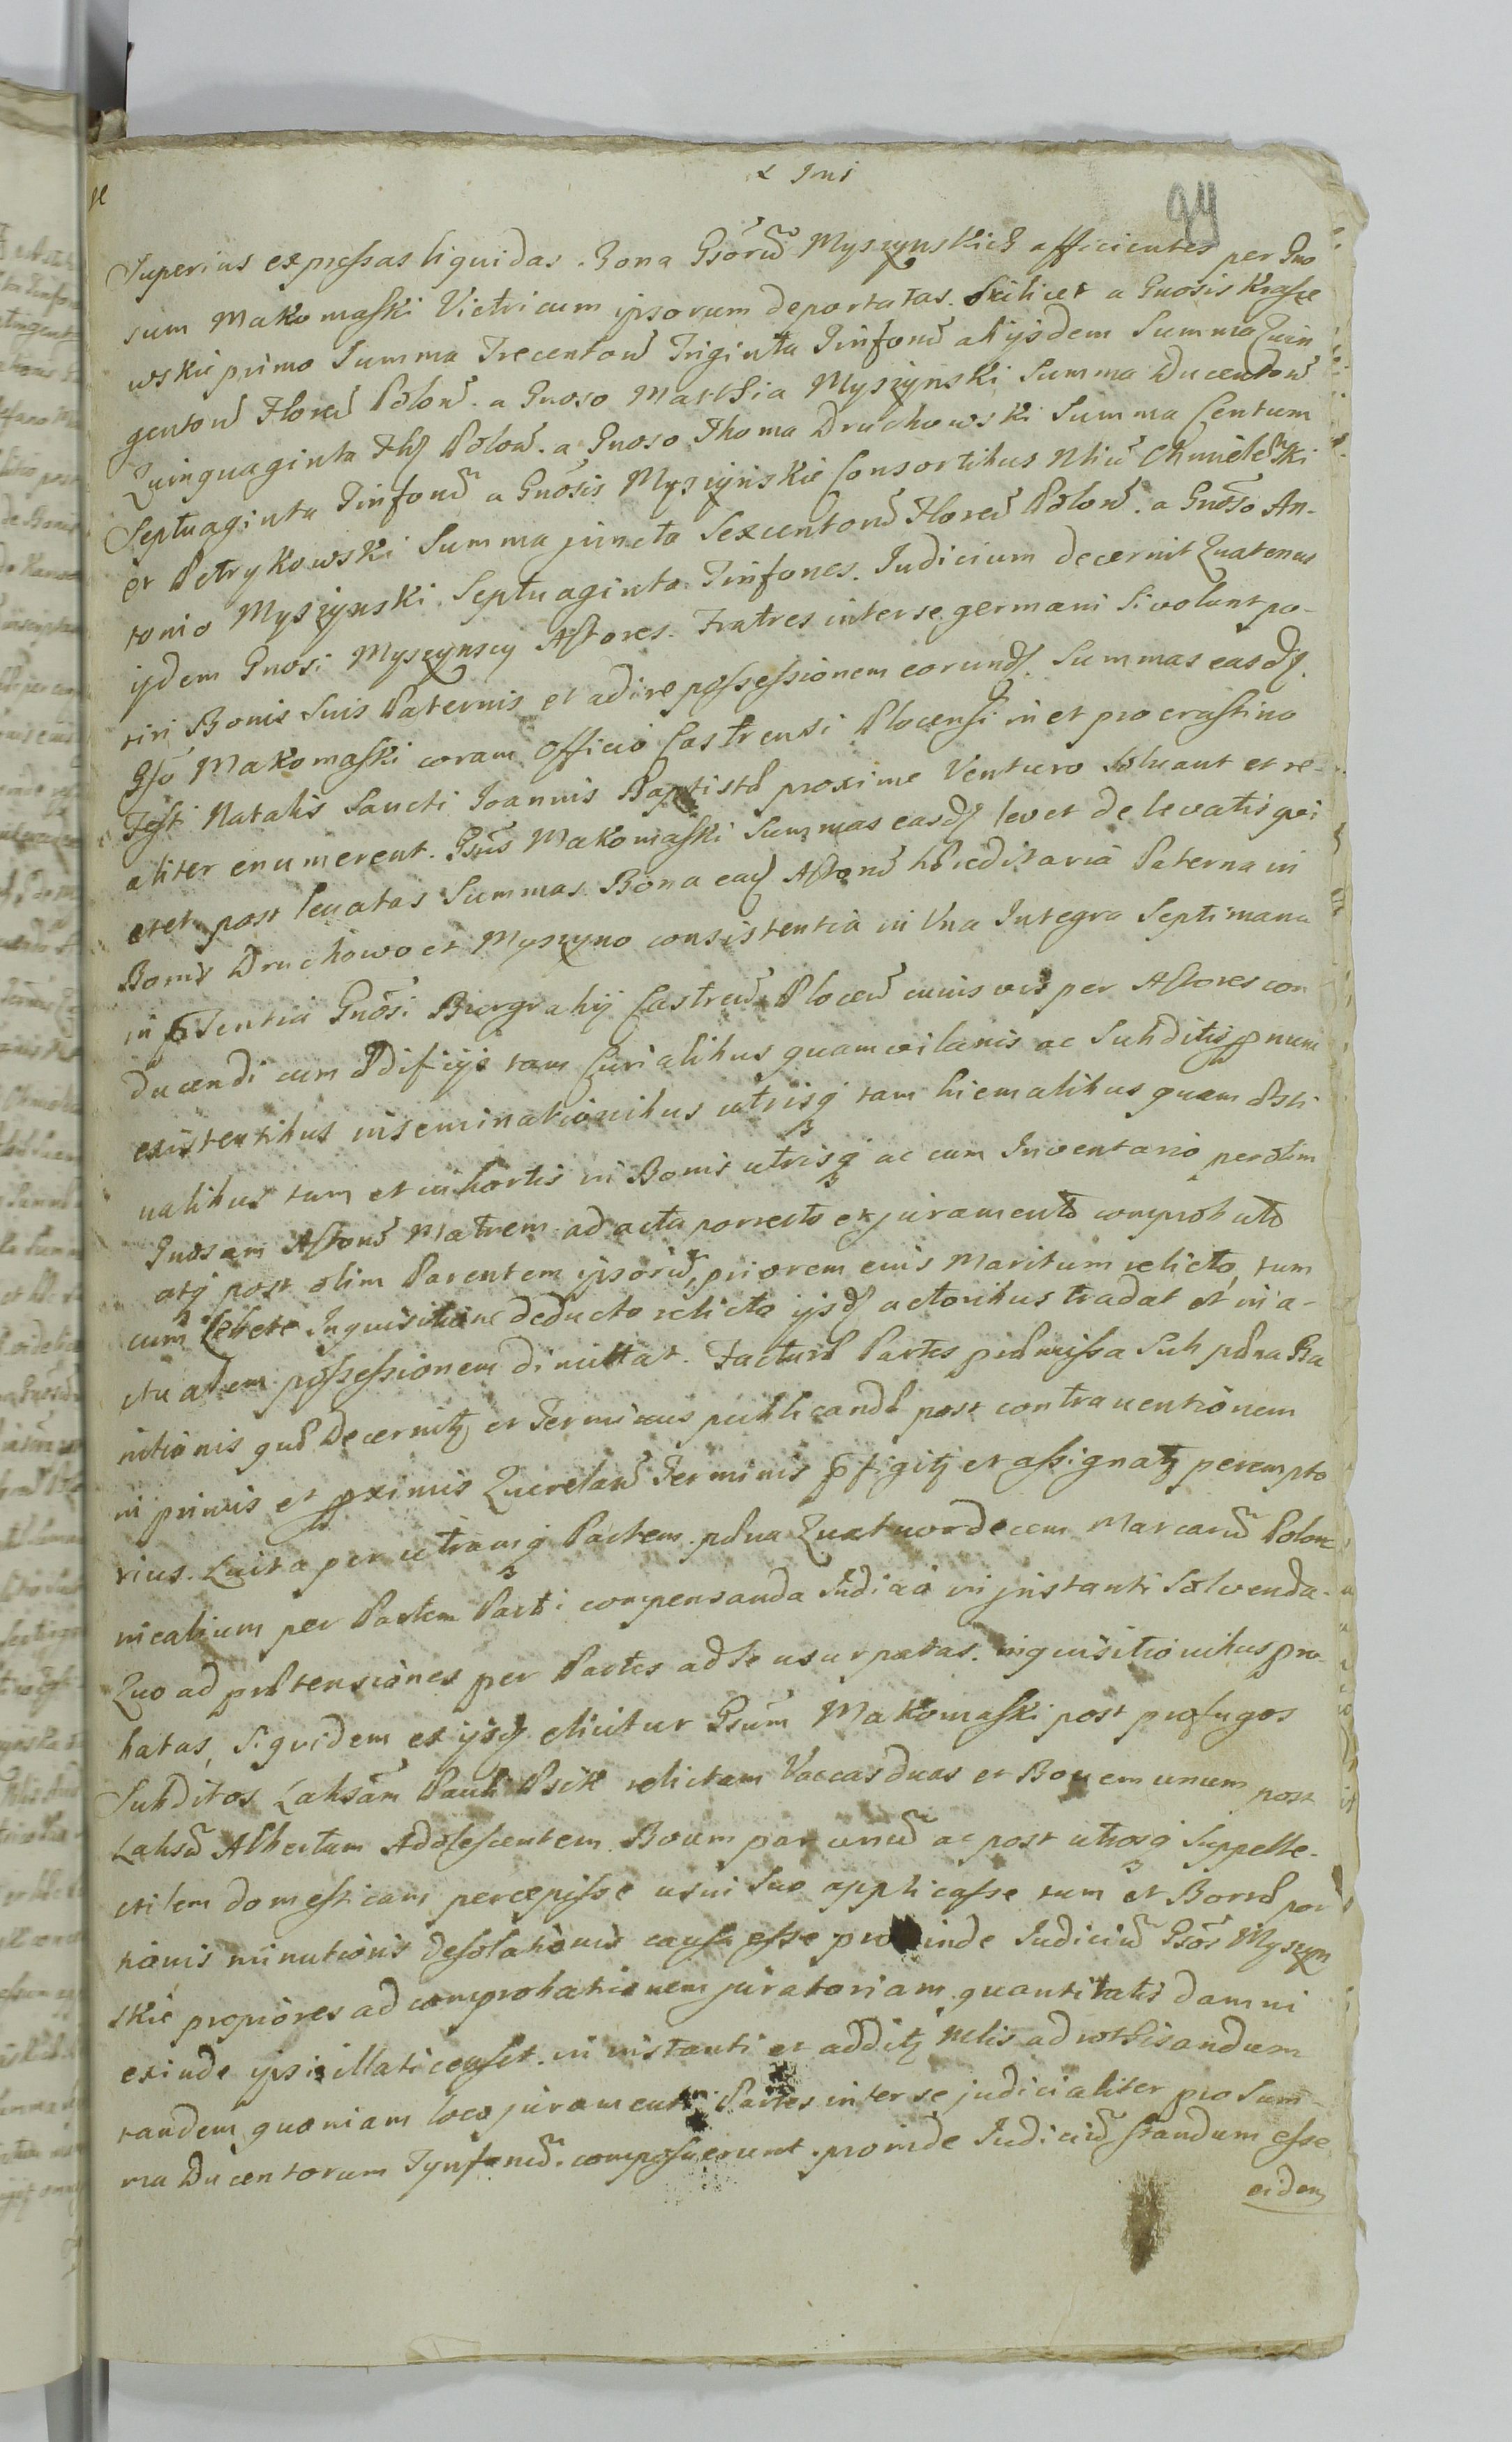 94
Superius expressas liquidas. Bona Gsorū Myszynskich afficientes per Gno
sum Makomaski Vitricum ipsorum deportatas. Scilicet a Gnosis Krasze
wskie primo Summa Trecentorū Triginta Tinfonū ab ijsdem Summa Quin
gentorū Florū Polon̄. a Gnoso Matthia Myszynski Summa Ducentorū
Quinquaginta Flq Polon̄. a Gnoso Thoma Druchowski Summa Centum
Septuaginta Tinfonū a Gnosis Myszynskie Consortibus Nliū Chmielewski
et Petrykowski Summa juncta Sexcentorū Florū Polon̄. a Gnoso An-
tonio Myszynski Septuaginta Tinfones. Judicium decernit Quatenus
ijdem Gnosi Myszynscy Actores. Fratres inter se germani Si volunt po-
tiri Bonis Suis Paternis et adire possessionem eorundq. Summas easdq.
Gso Makomaski coram Officio Castrensi Plocensi in et pro crastino
Festi Natalis Sancti Joannis Baptistæ proxime Venturo Solvant et re-
aliter enumerent. Gsus Makomaski Summas easdq levet de levatis qui
etet post levatas Summas Bona eadq Actorū hæreditaria Paterna in
Bonis Druchowo et Myszyno consistentia in Una Integra Septimana
in pñtia Gnosi Burgrabij Castren̄ Plocen̄ cuiusvis per Actores con
ducendi cum Ædificijs tam Curialibus quam villanis ac Subditis pnunc
existentibus inseminationibus utrisq tam hiemalibus quam æsti
valibus tum et in hortis in Bonis utrisq ac cum Inventario per olim
Gnosam Actorū Matrem ad acta porrecto et juramento comprobato
atq post olim Parentem ipsorū, priorem eius Maritum relicto, tum
cum lebete Inquisitione deducto relicto ijsdq actoribus tradat et in a-
ctualem possessionem dimittat. Facturæ Partes præmissa Sub pæna Ba
nitionis quæ Decernitq et Terminus publicandæ post contraventionem
in primis et pximis Querelarū Terminis pfigitq et assignatq perempto
rius. Luita per utramq Partem pæna Quatuordecem Marcarū Polon
nicalium per Partem Parti compensanda Judicio in instanti Solvenda.
Quo ad prætensiones per Partes ad se usurpatas. inquisitionibus pro
batas, Siquidem ex ijsq elicitur Gsum Makomaski post profugos
Subditos Labsam Pauli Psik relictam Vaccas duas et Bovem unum post
Labsū Albertum Adolescentem Boum par unū ac post utrosq Suppelle-
ctilem domesticam percepisse usui Suo applicasse tum et Bonæ por
tionis minutionis desolationis causa esse proinde Judiciū Gsos Myszyn
skie propiores ad comprobationem juratoriam quantitatis damni
exinde ipsi illati censet in instanti et additq Nlis ad rothisandum
tandem quoniam loco juramenti Partes inter se judicialiter pro Sum-
ma Ducentorum Tynfonū. composuerunt. proinde Judiciū standum esse
eidem